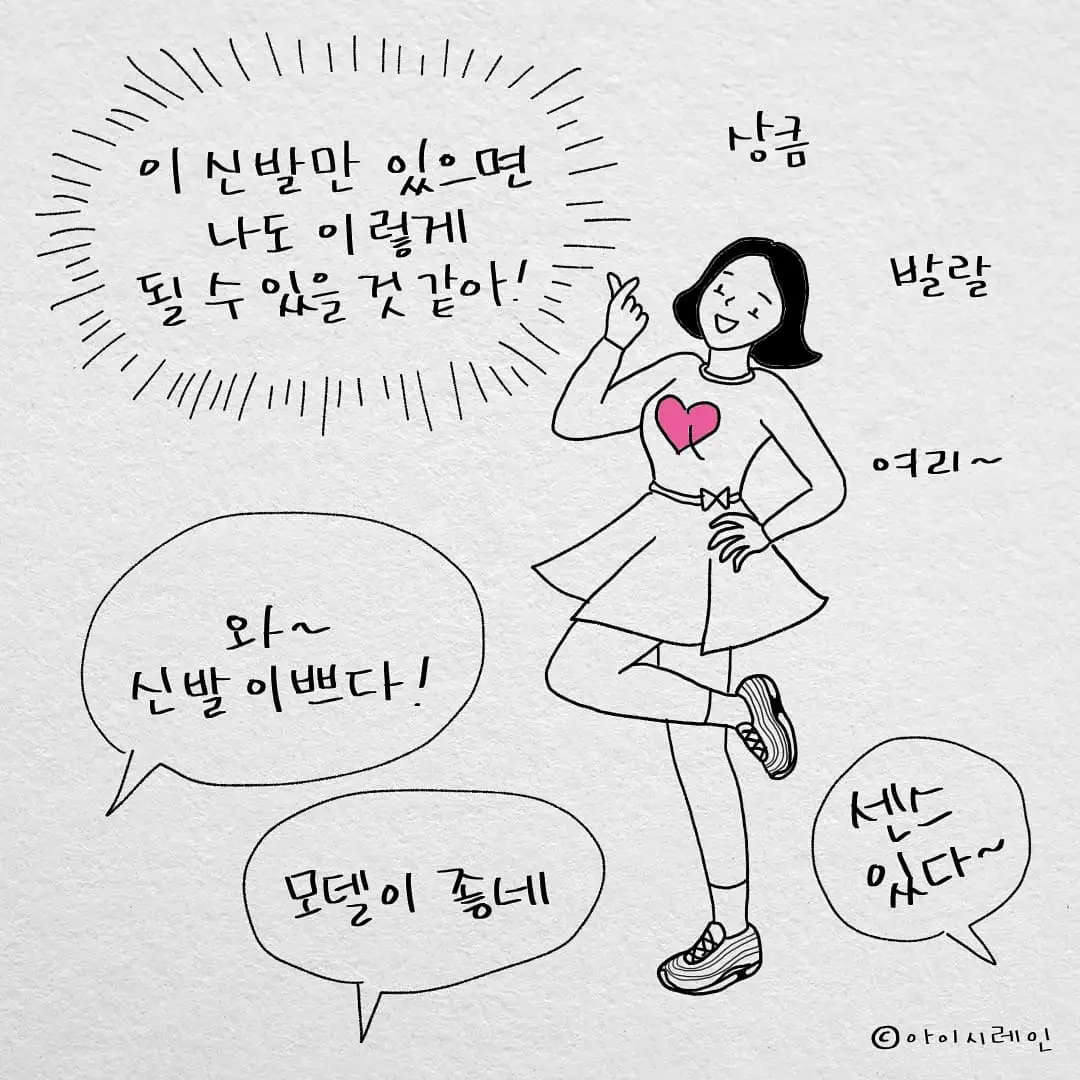 이 신발만 있으면
나도 이렇게
될 수 있을 것 같아!
상큼
발랄
여리~
와~
신발 이쁘다!
모델이 좋네
센스
있다~
©아이시레인